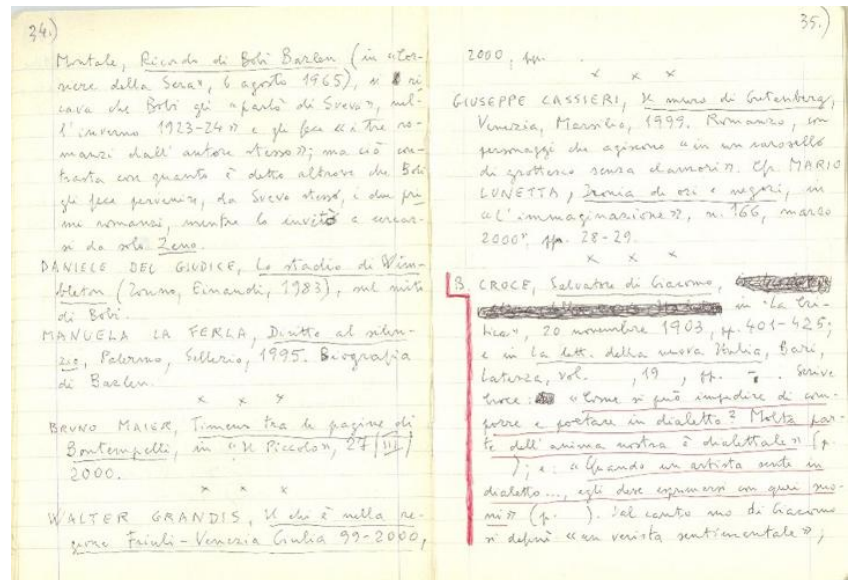 34.)
Montale, Ricordo di Bobi Bazlen (in «Cor-
riere della Sera», 6 agosto 1965), si ri-
cava che Bobi gli «parlò di Svevo», nel-
l'inverno 1923-24» e gli fece «i tre ro-
manzi dall'autore stesso»; ma ciò con-
trasta con quanto è detto altrove che Bobi
gli fece pervenire, da Svevo stesso, i due pri
mi romanzi, mentre lo invitò a cercar-
si da solo Zeno.
DANIELE DEL GIUDICE, Lo stadio di Wim-
bleton (Torino, Einaudi, 1983), sul mito
di Bobi.
MANUELA LA FERLA, Diritto al silen-
zio, Palermo, Sellerio, 1995. Biografia
di Bazlen.
x x x
BRUNO MAIER, Timeus tra le pagine di
Bontempelli, in «Il Piccolo», 27/III/
2000.
x x x
WALTER GRANDIS, Il chi è nella re-
gione Friuli-Venezia Giulia 99-2000,
35.)
2000, pp.
x x x
GIUSEPPE CASSIERI, Il muro di Gutenberg,
Venezia, Marsilio, 1999. Romanzo, con
personaggi che agiscono «in un carosello
di grottesco senza clamori». Cfr. MARIO
LUNETTA, Ironia di ori e negori, in
«L'immaginazione», n. 166, marzo
2000, pp. 28-29.
x x x
B. CROCE, Salvatore di Giacomo,
in "La Cri-
tica", 20 novembre 1903, pp. 401-425;
e in La lett. della nuova Italia, Bari,
Laterza, vol. , 19 , pp. - . Scrive
Croce: «Come si può impedire di com-
porre e poetare in dialetto? Molta par-
te dell'anima nostra è dialettale» (p.
); e: «Quando un artista sente in
dialetto..., egli deve esprimersi con quei suo-
ni» (p. ). Dal canto suo di Giacomo
si definì «un verista sentimentale»;